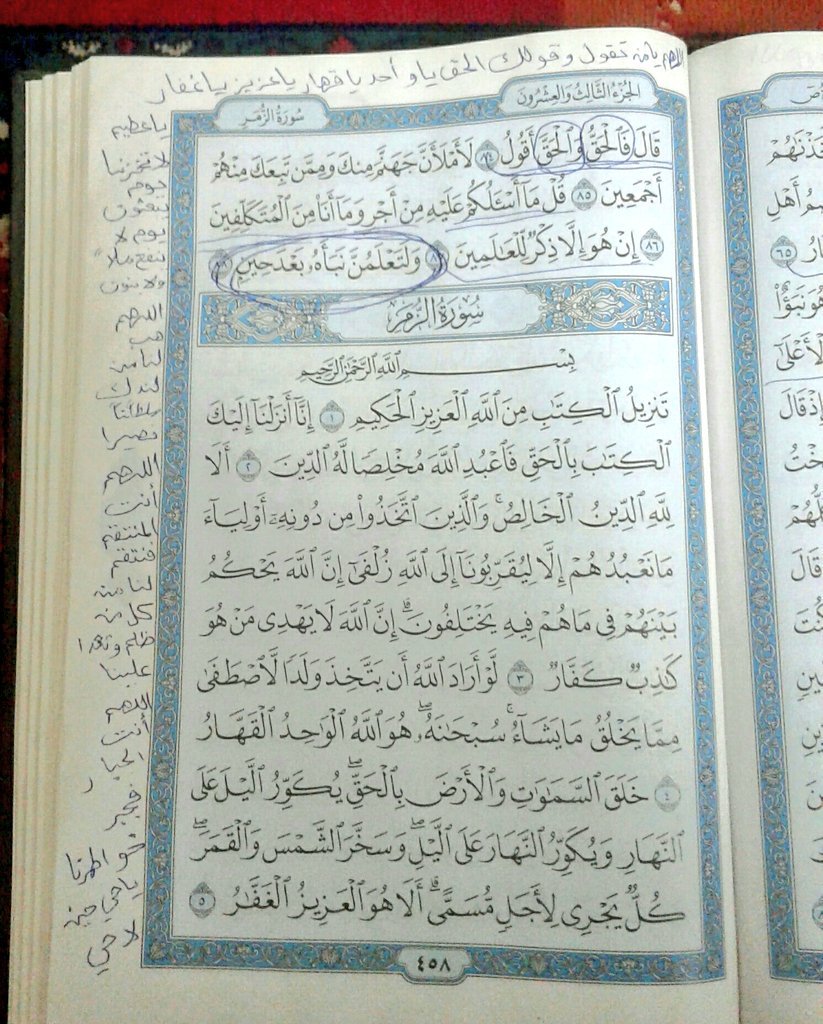 اللهم يا من تقول وقولك الحق يا واحد يا قهار يا عزيز يا غفار
الجزء الثالث والعشرون
سورة الزمر
قَالَ فَٱلْحَقُّ وَٱلْحَقَّ أَقُولُ ٨٤ لَأَمْلَأَنَّ جَهَنَّمَ مِنكَ وَمِمَّن تَبِعَكَ مِنْهُمْ
أَجْمَعِينَ ٨٥ قُلْ مَآ أَسْـَٔلُكُمْ عَلَيْهِ مِنْ أَجْرٍ وَمَآ أَنَا۠ مِنَ ٱلْمُتَكَلِّفِينَ
٨٦ إِنْ هُوَ إِلَّا ذِكْرٌ لِّلْعَـٰلَمِينَ ٨٧ وَلَتَعْلَمُنَّ نَبَأَهُۥ بَعْدَ حِينٍ ٨٨
سُورَةُ الزُّمَرِ
بِسْمِ ٱللَّهِ ٱلرَّحْمَـٰنِ ٱلرَّحِيمِ
تَنزِيلُ ٱلْكِتَـٰبِ مِنَ ٱللَّهِ ٱلْعَزِيزِ ٱلْحَكِيمِ ١ إِنَّآ أَنزَلْنَآ إِلَيْكَ
ٱلْكِتَـٰبَ بِٱلْحَقِّ فَٱعْبُدِ ٱللَّهَ مُخْلِصًا لَّهُ ٱلدِّينَ ٢ أَلَا
لِلَّهِ ٱلدِّينُ ٱلْخَالِصُ ۚ وَٱلَّذِينَ ٱتَّخَذُوا۟ مِن دُونِهِۦٓ أَوْلِيَآءَ
مَا نَعْبُدُهُمْ إِلَّا لِيُقَرِّبُونَآ إِلَى ٱللَّهِ زُلْفَىٰٓ إِنَّ ٱللَّهَ يَحْكُمُ
بَيْنَهُمْ فِى مَا هُمْ فِيهِ يَخْتَلِفُونَ ۗ إِنَّ ٱللَّهَ لَا يَهْدِى مَنْ هُوَ
كَـٰذِبٌ كَفَّارٌ ٣ لَّوْ أَرَادَ ٱللَّهُ أَن يَتَّخِذَ وَلَدًا لَّٱصْطَفَىٰ
مِمَّا يَخْلُقُ مَا يَشَآءُ ۚ سُبْحَـٰنَهُۥ ۖ هُوَ ٱللَّهُ ٱلْوَٰحِدُ ٱلْقَهَّارُ
٤ خَلَقَ ٱلسَّمَـٰوَٰتِ وَٱلْأَرْضَ بِٱلْحَقِّ ۖ يُكَوِّرُ ٱلَّيْلَ عَلَى
ٱلنَّهَارِ وَيُكَوِّرُ ٱلنَّهَارَ عَلَى ٱلَّيْلِ ۖ وَسَخَّرَ ٱلشَّمْسَ وَٱلْقَمَرَ ۖ
كُلٌّ يَجْرِى لِأَجَلٍ مُّسَمًّى ۗ أَلَا هُوَ ٱلْعَزِيزُ ٱلْغَفَّـٰرُ ٥
٤٥٨
يا عظيم
لا تخزنا
يوم
يبعثون
يوم لا
ينفع مالا
ولا بنون
اللهم
هب
لنا من
لدنك
سلطانا
نصيرا
اللهم
أنت
المنتقم
فنتقم
لنا من
كل من
ظلم
علينا
اللهم
أنت
الجبار
يا حي حين
لا حي
أهل
٦٥
الأعلى
إذ قال
قال